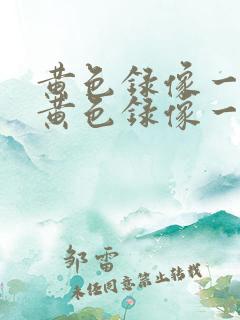 黄色録像一
黄色録像一
邹雷
未经同意禁止转载